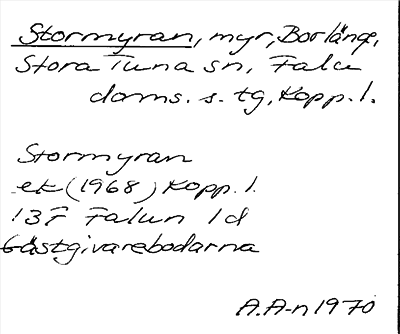 Stormyran, myr, Borlänge,
Stora Tuna sn, Falu
doms. s. tg, Kopp. l.
Stormyran
ek (1968) Kopp. l.
13F Falun 1d
Gästgivarebodarna
A.A-n 1970